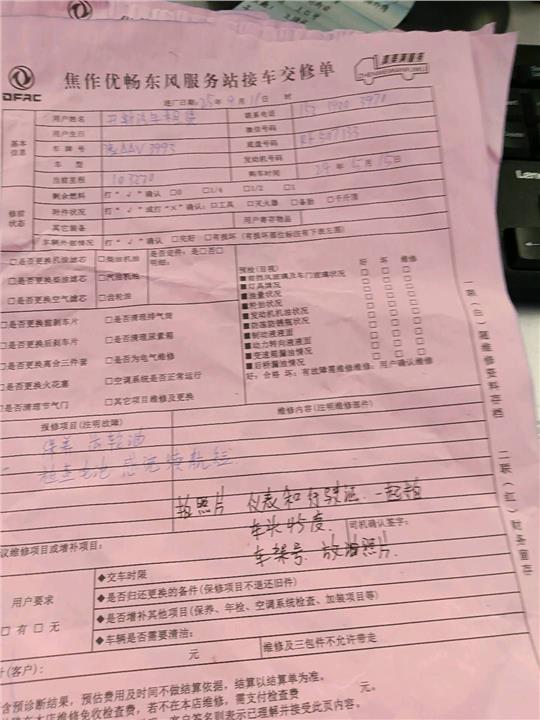 焦作优畅东风服务站接车交修单
DFAC
进厂日期：25年9月11日 时
基本信息
用户姓名
联系电话
用户生日
微信号码
车牌号 3993
底盘号码
车型
发动机号码
当前里程 103270
购车时间 24年5月15日
修前状态
剩余燃料 打“√”确认 □0 □1/4 □1/2 □1
附件状况 打“√”或打“×”确认：□工具 □灭火器 □备胎 □千斤顶
其它装备
用户寄存物品
车辆外部情况 打“√”确认 □完好 □有损坏（有损坏部位标注有下表左图）
□是否更换机油滤芯 □柴油机油
是否定件：是□否□
明细：
□是否更换柴油滤芯 □汽油机油
□是否更换空气滤芯 □齿轮油
预检（目视） 好 坏 维修
■前挡风玻璃及车门玻璃状况 □ □ □
■灯具情况 □ □ □
■油量状况 □ □ □
■轮胎状况 □ □ □
■发动机机油状况 □ □ □
■防冻防锈瓶状况 □ □ □
■制动液液面 □ □ □
■动力转向液液面 □ □ □
■变速箱漏油情况 □ □ □
■后桥漏油情况 □ □ □
好：合格 坏：有故障需维修维修：用户确认维修
□是否更换前刹车片 □是否清理排气筒
□是否更换后刹车片 □是否清理尿素箱
□是否更换离合三件套 □是否为电气维修
□是否更换火花塞 □空调系统是否正常运行
□是否清理节气门 □其它项目维修及更换
报修项目（注明故障）
维修内容（注明维修部件）
保养 齿轮油
检查电池 总里续航短
拍照片 仪表和行驶证 一起拍
车头45度
司机确认签字：
车架号 放油照片
议维修项目或增补项目：
用户要求
□有 □无
◆交车时限
◆是否归还更换的备件（保修项目不退还旧件）
◆是否增补其他项目（保养、年检、空调系统检查、加装项目等）
◆车辆是否需要清洁：
计（客户）： 元
维修及三包件不允许带走
含预诊断结果，预估费用及时间不做结算依据，结算以结算单为准。
在本店维修免收检查费，若不在本店维修，需支付检查费 元。
客户签名则表示已理解并接受此页内容。
一联（白）随维修资料存档
二联（红）财务留存
Lenovo